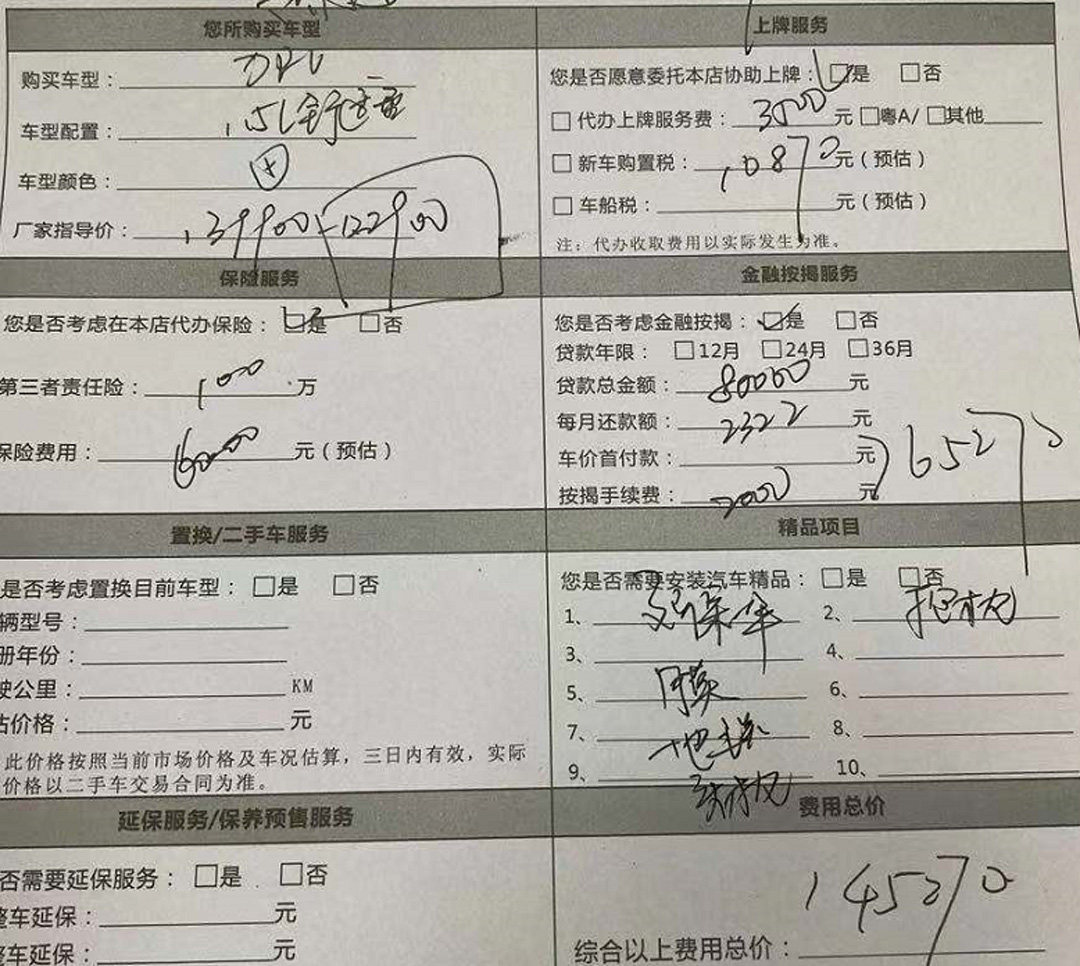 您所购买车型
购买车型：
车型配置：1.5L舒适型
车型颜色：白
厂家指导价：139900-122900
上牌服务
您是否愿意委托本店协助上牌：☑是 □否
□代办上牌服务费：3500元 □粤A/ □其他
□新车购置税：10870元（预估）
□车船税：元（预估）
注：代办收取费用以实际发生为准。
保险服务
您是否考虑在本店代办保险：☑是 □否
第三者责任险：100万
保险费用：6000元（预估）
金融按揭服务
您是否考虑金融按揭：☑是 □否
贷款年限：□12月 □24月 □36月
贷款总金额：80000元
每月还款额：2322元
车价首付款：元
按揭手续费：2000元
65270
置换/二手车服务
是否考虑置换目前车型：□是 □否
辆型号：
册年份：
驶公里：KM
估价格：元
此价格按照当前市场价格及车况估算，三日内有效，实际
价格以二手车交易合同为准。
精品项目
您是否需要安装汽车精品：□是 □否
1、
2、抱枕
3、
4、
5、
6、
7、
8、
9、
10、
延保服务/保养预售服务
否需要延保服务：□是 □否
整车延保：元
整车延保：元
费用总价
145270
综合以上费用总价：